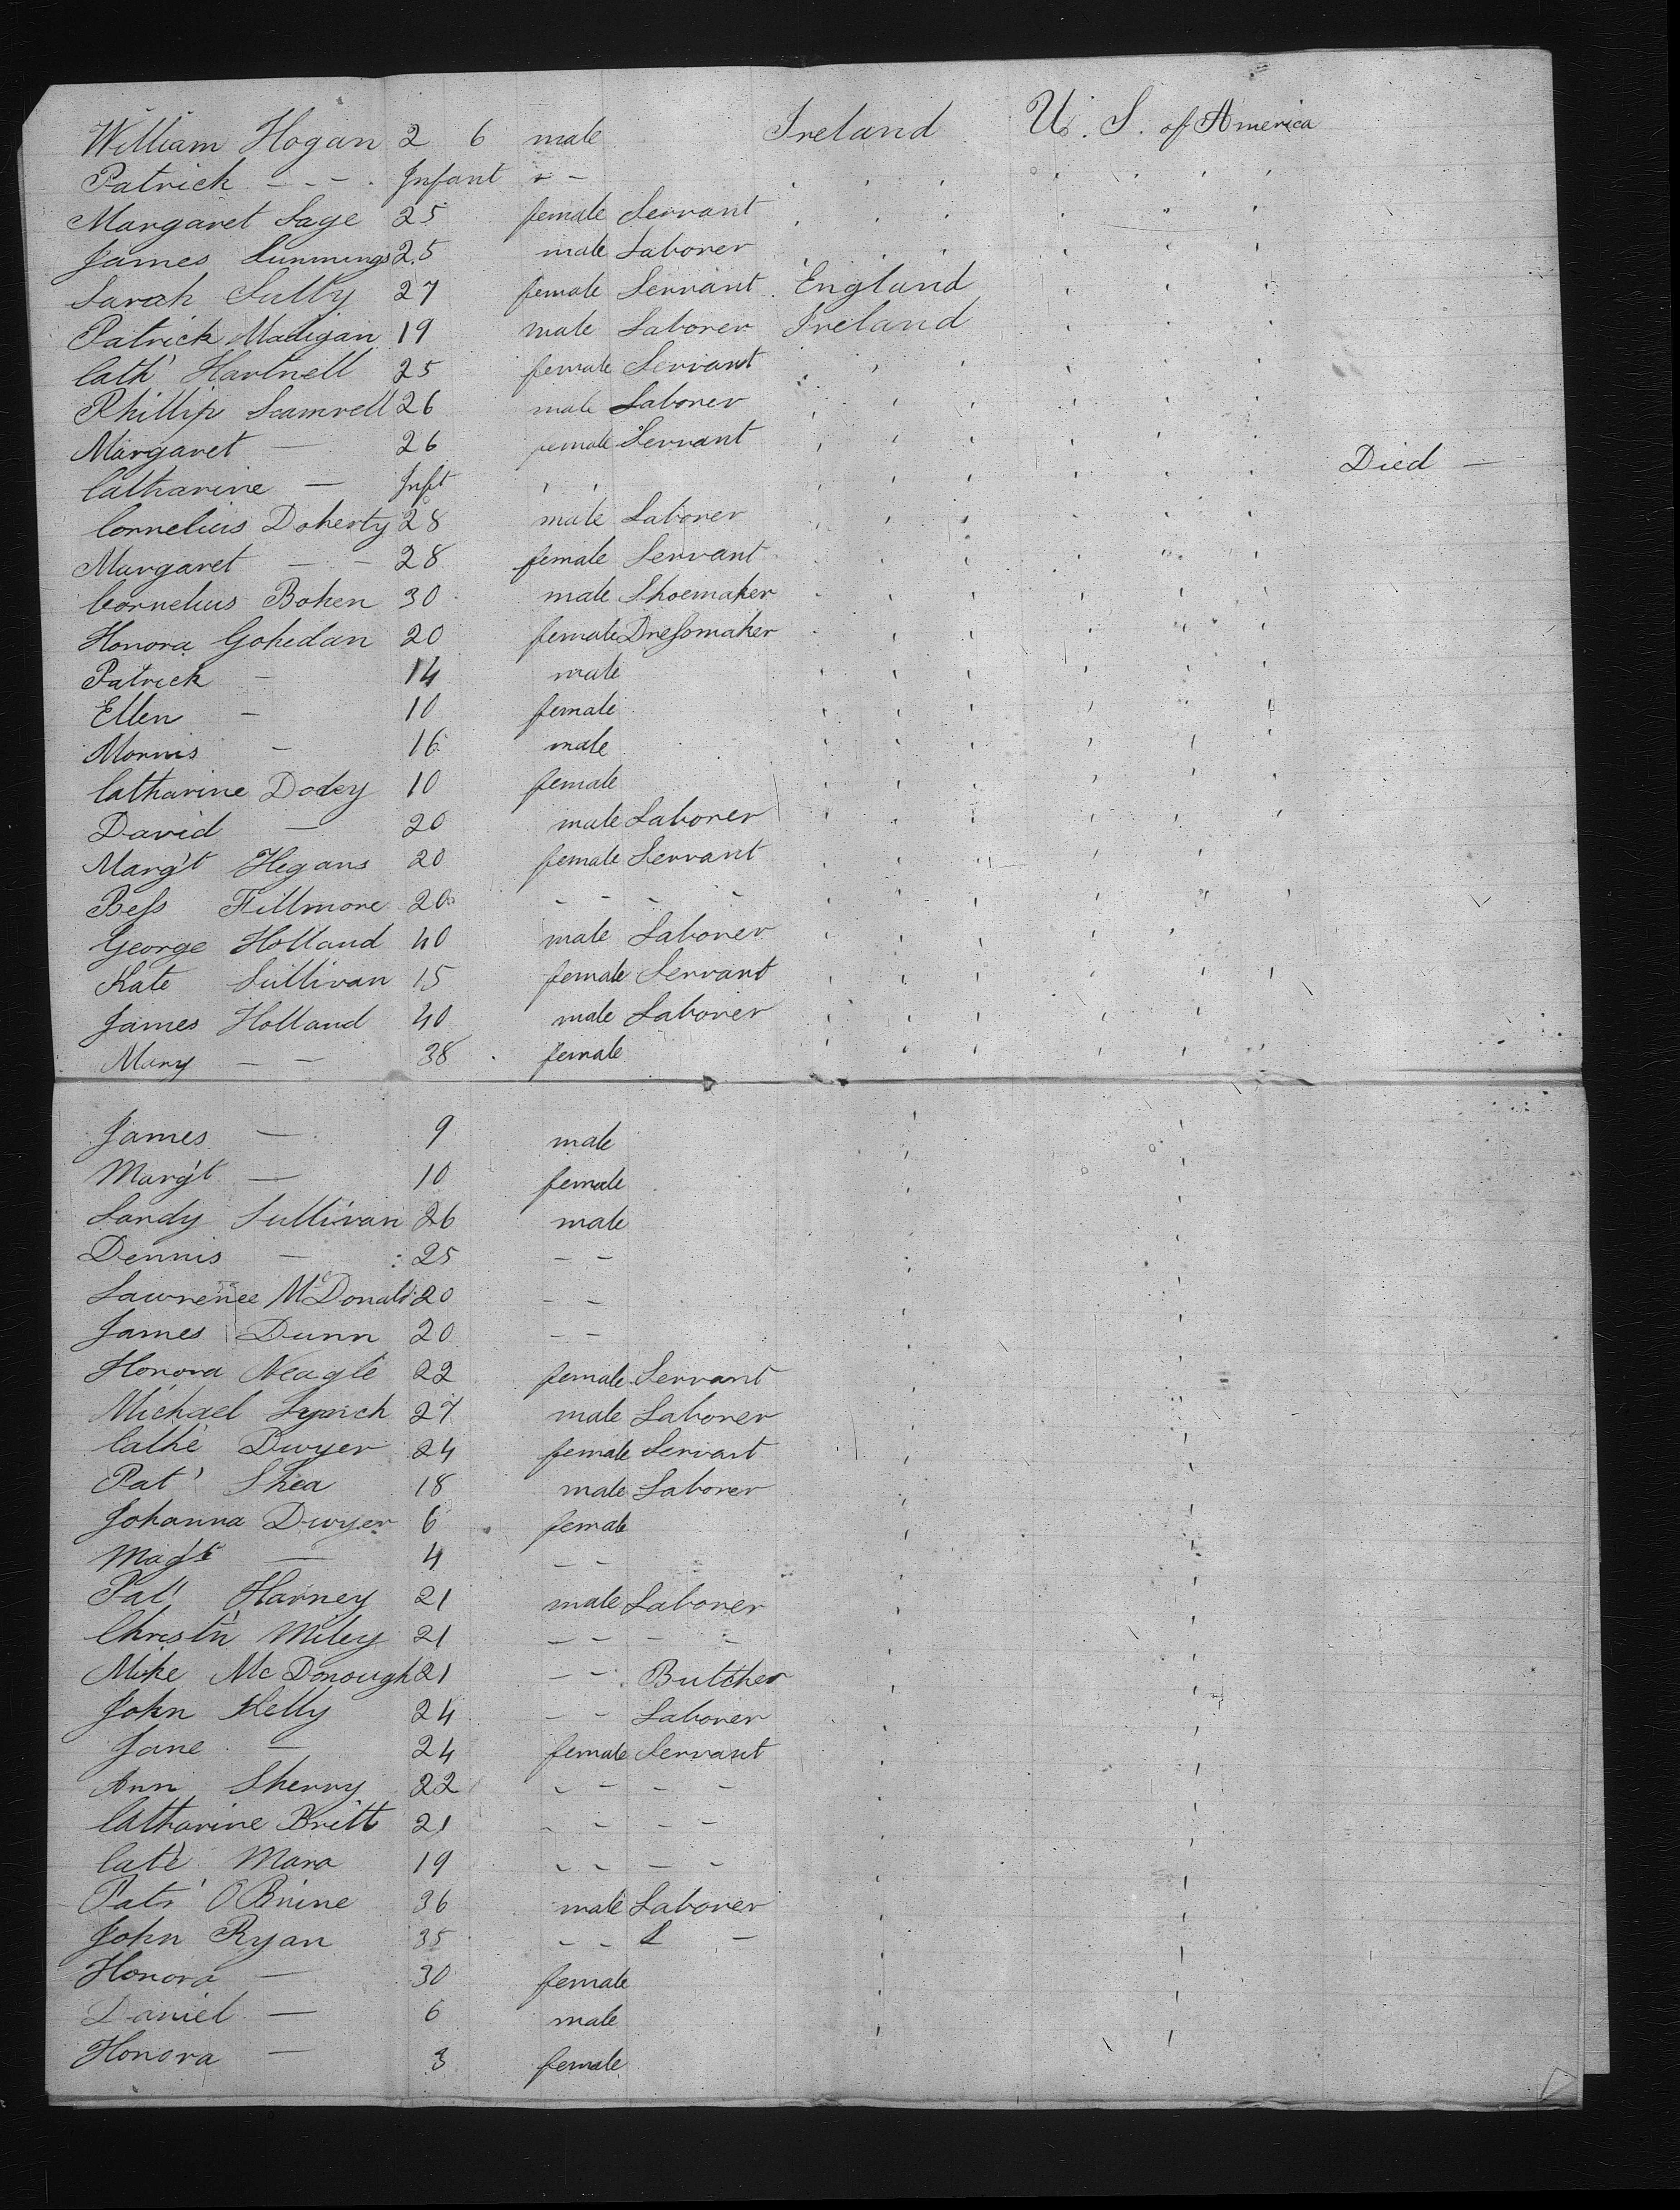 William Hogan 2 6 male Ireland U. S. of America
Patrick - - - . Infant - -
Margaret Sage 25 female Servant
James Cummings 25 male Laborer
Sarah Sully 27 female Servant England
Patrick Madigan 19 male Laborer Ireland
Cath' Hartnell 25 female Servant
Phillip Scamrell 26 male Laborer
Margaret — 26 female Servant
Catharine — Inft ' ' Died —
Cornelius Doherty 28 male Laborer
Margaret — - — 28 female Servant
Cornelius Boken 30 male Shoemaker
Honora Gohedan 20 female Dressmaker
Patrick - 14 male
Ellen - 10 female
Morris - 16 male
Catharine Dodey 10 female
David — 20 male Laborer
Marg't Hegans 20 female Servant
Bess Fillmore 20 - - - -
George Holland 40 male Laborer
Kate Sullivan 15 female Servant
James Holland 40 male Laborer
Mary — — 38 female
James — 9 male
Marg't — 10 female
Sandy Sullivan 26 male
Dennis — 25 - -
Lawrence McDonald 20 - -
James Dunn 20 - -
Honora Neagle 22 female Servant
Michael Lynch 27 male Laborer
Cathe' Dwyer 24 female Servant
Pat' Shea 18 male Laborer
Johanna Dwyer 6 female
Mag't — 4 - -
Pat' Harney 21 male Laborer
Christ'n Miley 21 - - - -
Mike McDonough 21 - - Butcher
John Kelly 24 - - Laborer
Jane — 24 female Servant
Ann Sherry 22 - - - -
Catharine Britt 21 - - - -
Cate' Mara 19 - - - -
Pat' O'Brine 36 male Laborer
John Ryan 35 - - L -
Honora — 30 female
Daniel — 6 male
Honora — 3 female